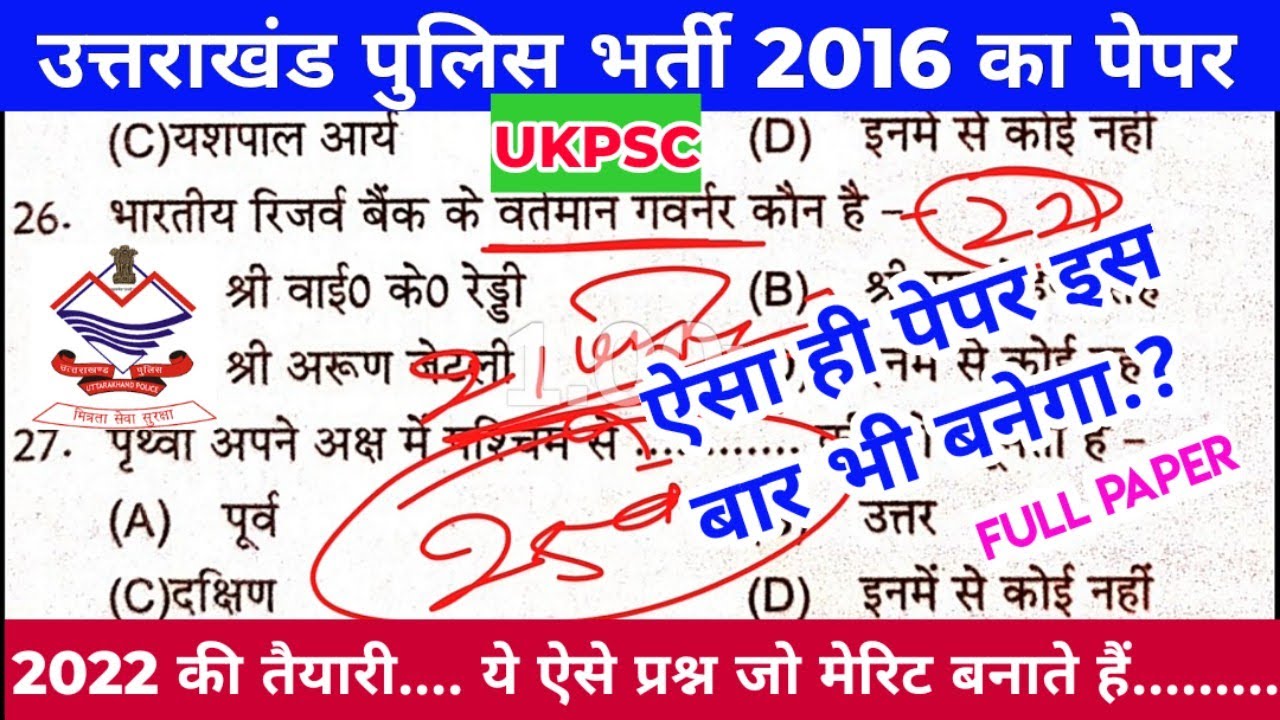 उत्तराखंड पुलिस भर्ती 2016 का पेपर
(C)यशपाल आर्य
UKPSC
(D) इनमें से कोई नहीं
26. भारतीय रिजर्व बैंक के वर्तमान गवर्नर कौन है –
22
श्री वाई0 के0 रेड्डी
(B)
श्री अरूण जेटली
1.00
ऐसा ही पेपर इस
बार भी बनेगा.?
FULL PAPER
उत्तराखण्ड पुलिस
UTTARAKHAND POLICE
मित्रता सेवा सुरक्षा
27. पृथ्वी अपने अक्ष में पश्चिम से ............
(A) पूर्व
25
उत्तर
(C)दक्षिण
(D) इनमें से कोई नहीं
2022 की तैयारी.... ये ऐसे प्रश्न जो मेरिट बनाते हैं.........